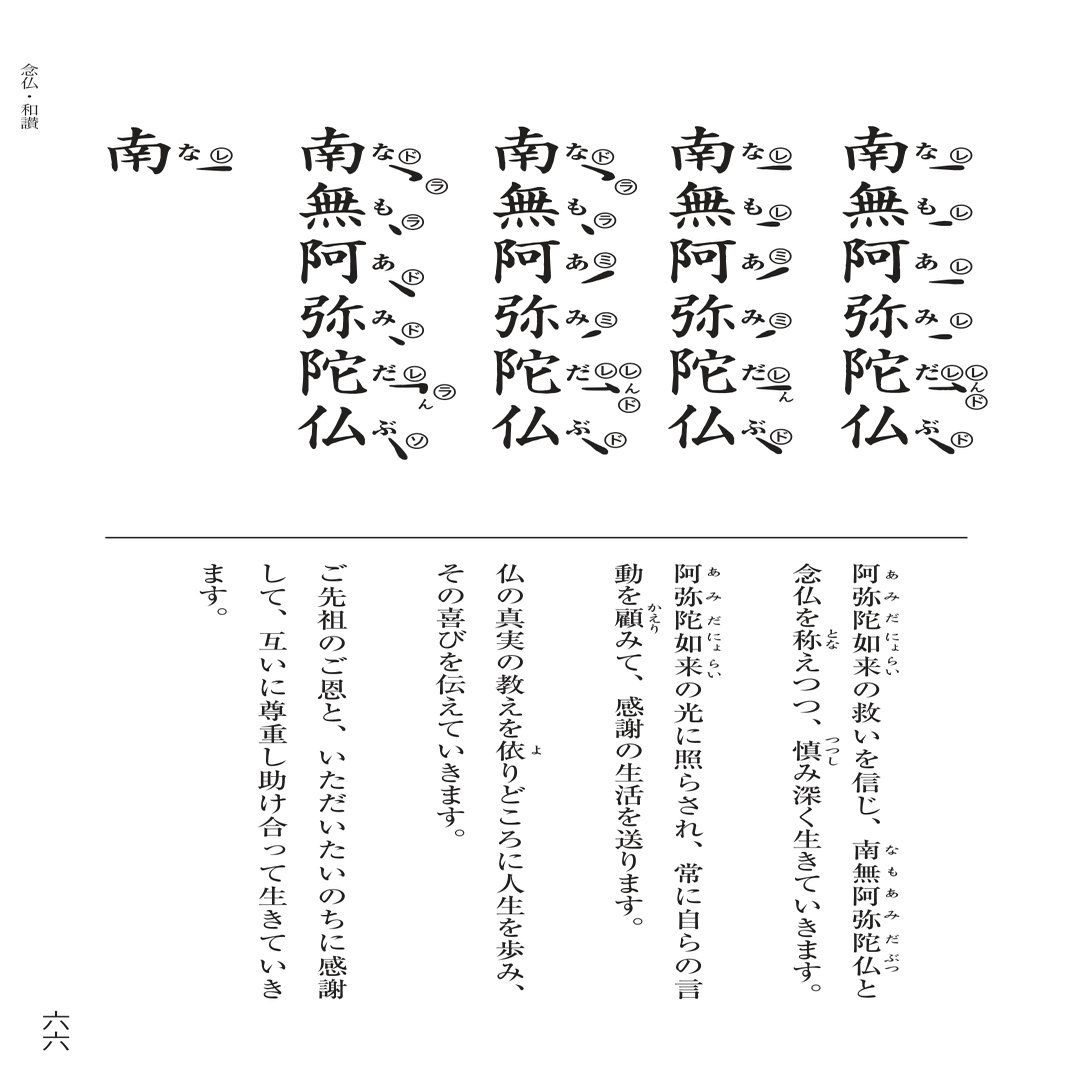 念仏・和讃
南無阿弥陀仏
なもあみだんぶ
レレレレレレんドド
南無阿弥陀仏
なもあみだんぶ
レレミミレド
南無阿弥陀仏
なもあみだんぶ
ドララミミレレドド
南無阿弥陀仏
なもあみだんぶ
ドララドドレラソ
南
な
レ
阿弥陀如来の救いを信じ、南無阿弥陀仏と
あみだにょらい なもあみだぶつ
念仏を称えつつ、慎み深く生きていきます。
とな つつし
阿弥陀如来の光に照らされ、常に自らの言
あみだにょらい
動を顧みて、感謝の生活を送ります。
かえり
仏の真実の教えを依りどころに人生を歩み、
よ
その喜びを伝えていきます。
ご先祖のご恩と、いただいたいのちに感謝
して、互いに尊重し助け合って生きていき
ます。
六六